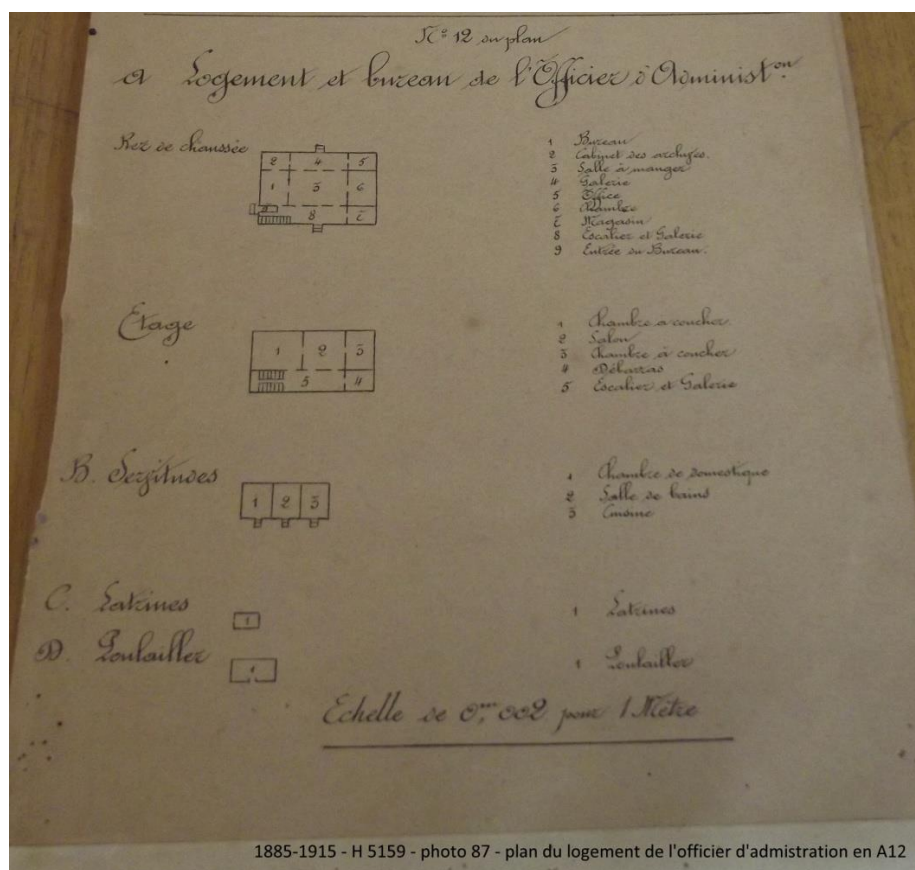 N° 12 du plan
A Logement et bureau de l'Officier d'Administ.on
Rez de chaussée
2 4 5
1 3 6
9 8 7
1 Bureau
2 Cabinet des archives.
3 Salle à manger
4 Galerie
5 Office
6 Chambre
7 Magasin
8 Escalier et Galerie
9 Entrée du Bureau.
Etage
1 2 3
5 4
1 Chambre a coucher
2 Salon
3 Chambre à coucher
4 Débarras
5 Escalier et Galerie
B. Servitudes
1 2 3
1 Chambre de domestique
2 Salle de bains
3 Cuisine
C. Latrines
1
1 Latrines
D. Poulailler
1
1 Poulailler
Echelle de 0m,002 pour 1 Mètre
1885-1915 - H 5159 - photo 87 - plan du logement de l'officier d'admistration en A12